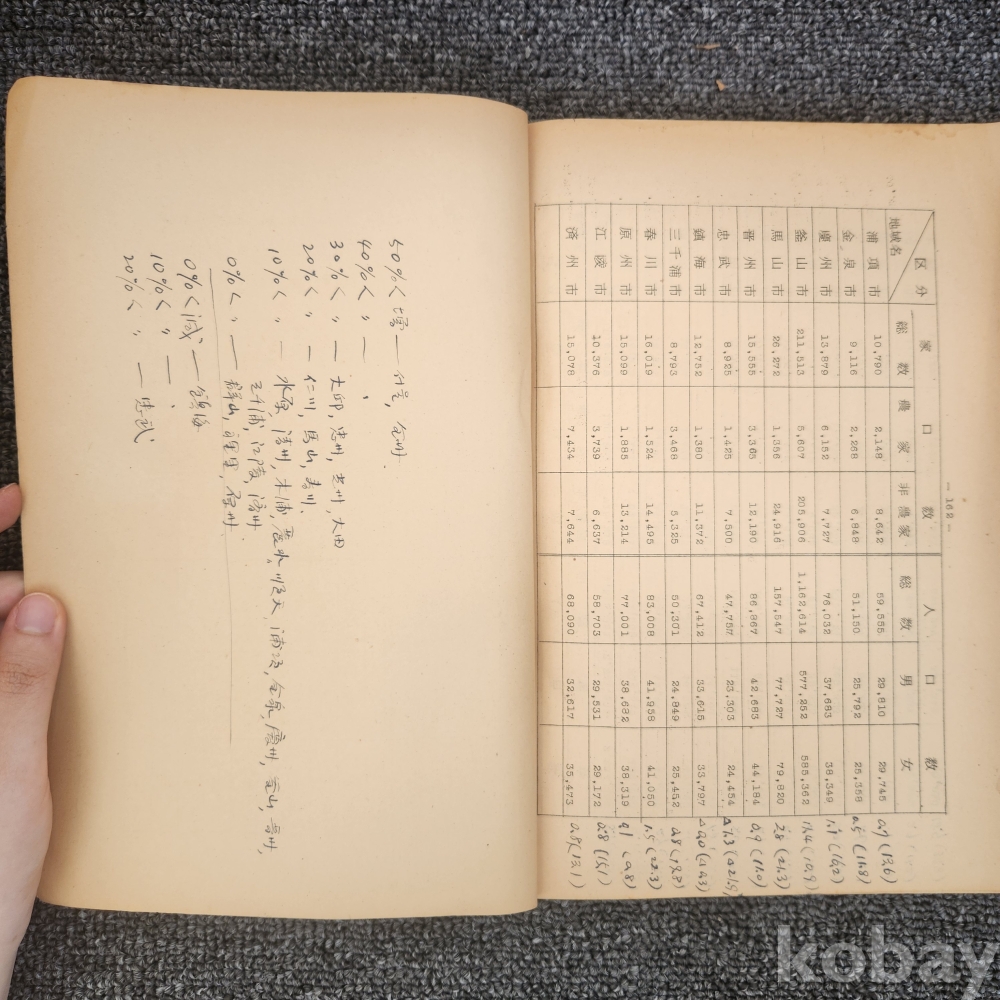 50%< 増 — 仁川, 全州.
40%< 〃 — 〃
30%< 〃 — 大邱, 忠州, 光州, 大田
20%< 〃 — 仁川, 馬山, 春川.
10%< 〃 — 水原, 清州, 木浦, 麗水, 順天, 浦項, 金泉, 慶州, 釜山, 晋州,
三千浦, 江陵, 済州
0%< 〃 — 群山, 裡里, 原州
0%< 減 — 鎮海
10%< 〃 — 〃
20%< 〃 — 忠武
— 162 —
区分 家口数 人口数
地域名 総数 農家 非農家 総数 男 女
浦項市 10,790 2,148 8,642 59,555 29,810 29,745 0.7 (13.6)
金泉市 9,116 2,268 6,848 51,150 25,792 25,358 0.5 (11.8)
慶州市 13,879 6,152 7,727 76,032 37,683 38,349 1.1 (16.2)
釜山市 211,513 5,607 205,906 1,162,614 577,252 585,362 11.4 (10.9)
馬山市 26,272 1,356 24,916 157,547 77,727 79,820 2.8 (21.3)
晋州市 15,555 3,365 12,190 86,867 42,683 44,184 0.9 (11.0)
忠武市 8,925 1,425 7,500 47,757 23,303 24,454
鎮海市 12,752 1,380 11,372 67,412 33,615 33,797
三千浦市 8,793 3,468 5,325 50,301 24,849 25,452 0.8 (19.3)
春川市 16,019 1,524 14,495 83,008 41,958 41,050 1.5 (22.3)
原州市 15,099 1,885 13,214 77,001 38,682 38,319
江陵市 10,376 3,739 6,637 58,703 29,531 29,172 0.8 (15.1)
済州市 15,078 7,434 7,644 68,090 32,617 35,473 0.8 (13.1)
kobay